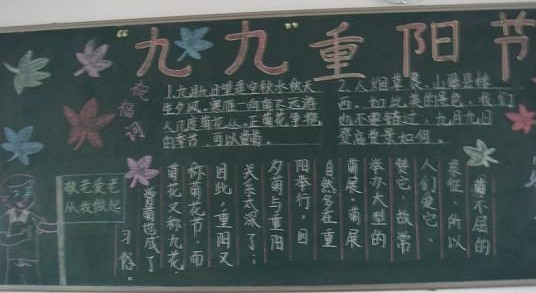 “九九重阳节
祝福词
1.九月九日望遥空,秋水秋天
生夕风。寒雁一向南飞远,游
人几度菊花丛。正菊花争艳
的季节,可以赏菊。
2.人烟
西。如此美的景色,我们
也不要错过,九月九日
登高赏景如何。
菊不屈的
象征,所以
人们爱它、
赞它,故常
举办大型的
菊展,菊展
自然多在重
阳举行,因
夕菊与重阳
关系太深了;
因此,重阳又
称菊花节,而
菊花又称九花。
赏菊也成了
习俗。
敬老爱老
从我做起